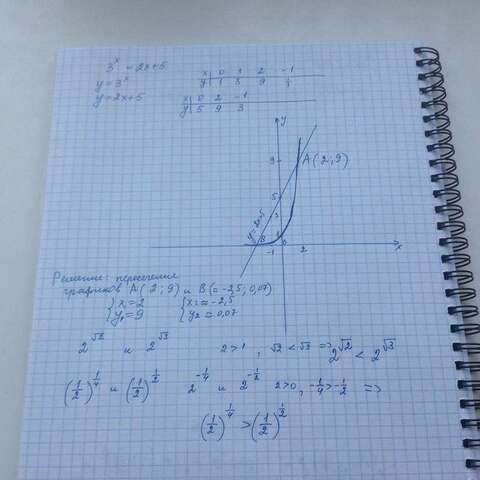 3^x = 2x+5
y=3^x
x 0 1 2 -1
y 1 3 9
y=2x+5
x 0 2 -1
y 5 9 3
y
9
A(2;9)
5
3
y=2x+5
B
-1
0
2
x
Решение: пересечение
графиков A(2;9) и B(≈-2,5; 0,07)
{x₁=2
{y₁=9
{x₂≈-2,5
{y₂≈0,07
2^√2 и 2^√3 2>1, √2<√3 => 2^√2 < 2^√3
(1/2)^1/4 и (1/2)^1/2 2^-1/4 и 2^-1/2 2>0, -1/4>-1/2 =>
(1/2)^1/4 > (1/2)^1/2